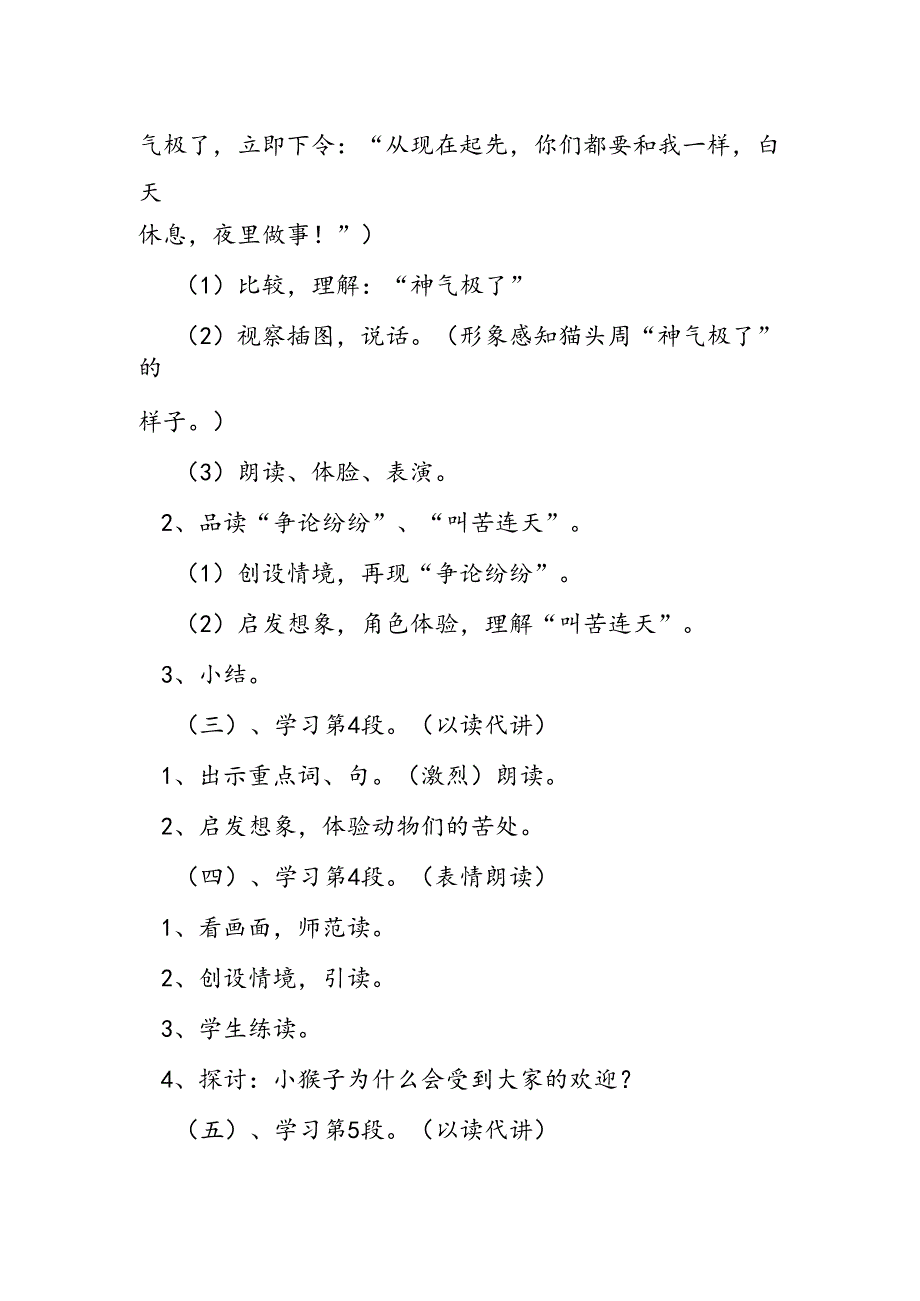 气极了，立即下令：“从现在起先，你们都要和我一样，白
天
休息，夜里做事！”）
（1）比较，理解：“神气极了”
（2）视察插图，说话。（形象感知猫头周“神气极了”
的
样子。）
（3）朗读、体脸、表演。
2、品读“争论纷纷”、“叫苦连天”。
（1）创设情境，再现“争论纷纷”。
（2）启发想象，角色体验，理解“叫苦连天”。
3、小结。
（三）、学习第4段。（以读代讲）
1、出示重点词、句。（激烈）朗读。
2、启发想象，体验动物们的苦处。
（四）、学习第4段。（表情朗读）
1、看画面，师范读。
2、创设情境，引读。
3、学生练读。
4、探讨：小猴子为什么会受到大家的欢迎？
（五）、学习第5段。（以读代讲）